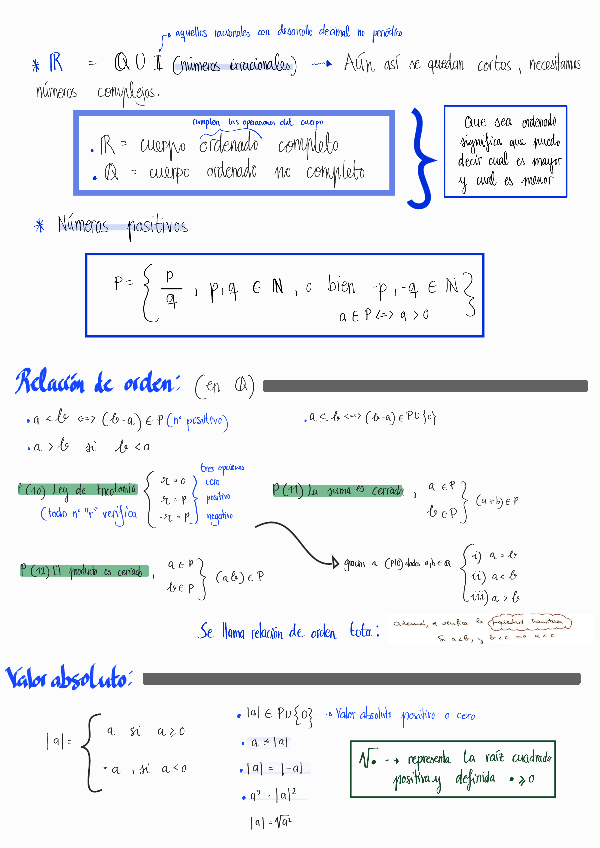 aquellos racionales con desarrollo decimal no periódico
* ℝ = ℚ ∪ 𝕀 (números irracionales) → Aún así se quedan cortos, necesitamos
números complejos.
cumplen las operaciones del cuerpo
• ℝ = cuerpo ordenado completo
• ℚ = cuerpo ordenado no completo
Que sea ordenado
significa que puedo
decir cual es mayor
y cual es menor
* Números positivos
P = { p/q , p,q ∈ ℕ, o bien -p,-q ∈ ℕ }
a ∈ P <=> a > 0
Relación de orden: (en ℚ)
• a < b <=> (b-a) ∈ P (nº positivo)
• a ≤ b <=> (b-a) ∈ P ∪ {0}
• a > b si b < a
P(10) Ley de tricotomía
(todo nº "r" verifica
tres opciones
r = 0 cero
r = P positivo
-r = P negativo
P(11) La suma es cerrada, a ∈ P
b ∈ P } (a+b) ∈ P
P(12) El producto es cerrado, a ∈ P
b ∈ P } (ab) ∈ P
gracias a (P10) dados a,b ∈ ℚ
i) a = b
ii) a < b
iii) a > b
Se llama relación de orden total:
además, se verifica la propiedad transitiva
Si a<b, y b<c => a<c
Valor absoluto:
|a| = { a si a ≥ 0
-a , si a < 0
• |a| ∈ P ∪ {0} → Valor absoluto positivo o cero
• a ≤ |a|
• |a| = |-a|
• a² = |a|²
|a| = √a²
√• → representa la raíz cuadrada
positiva y definida • ≥ 0